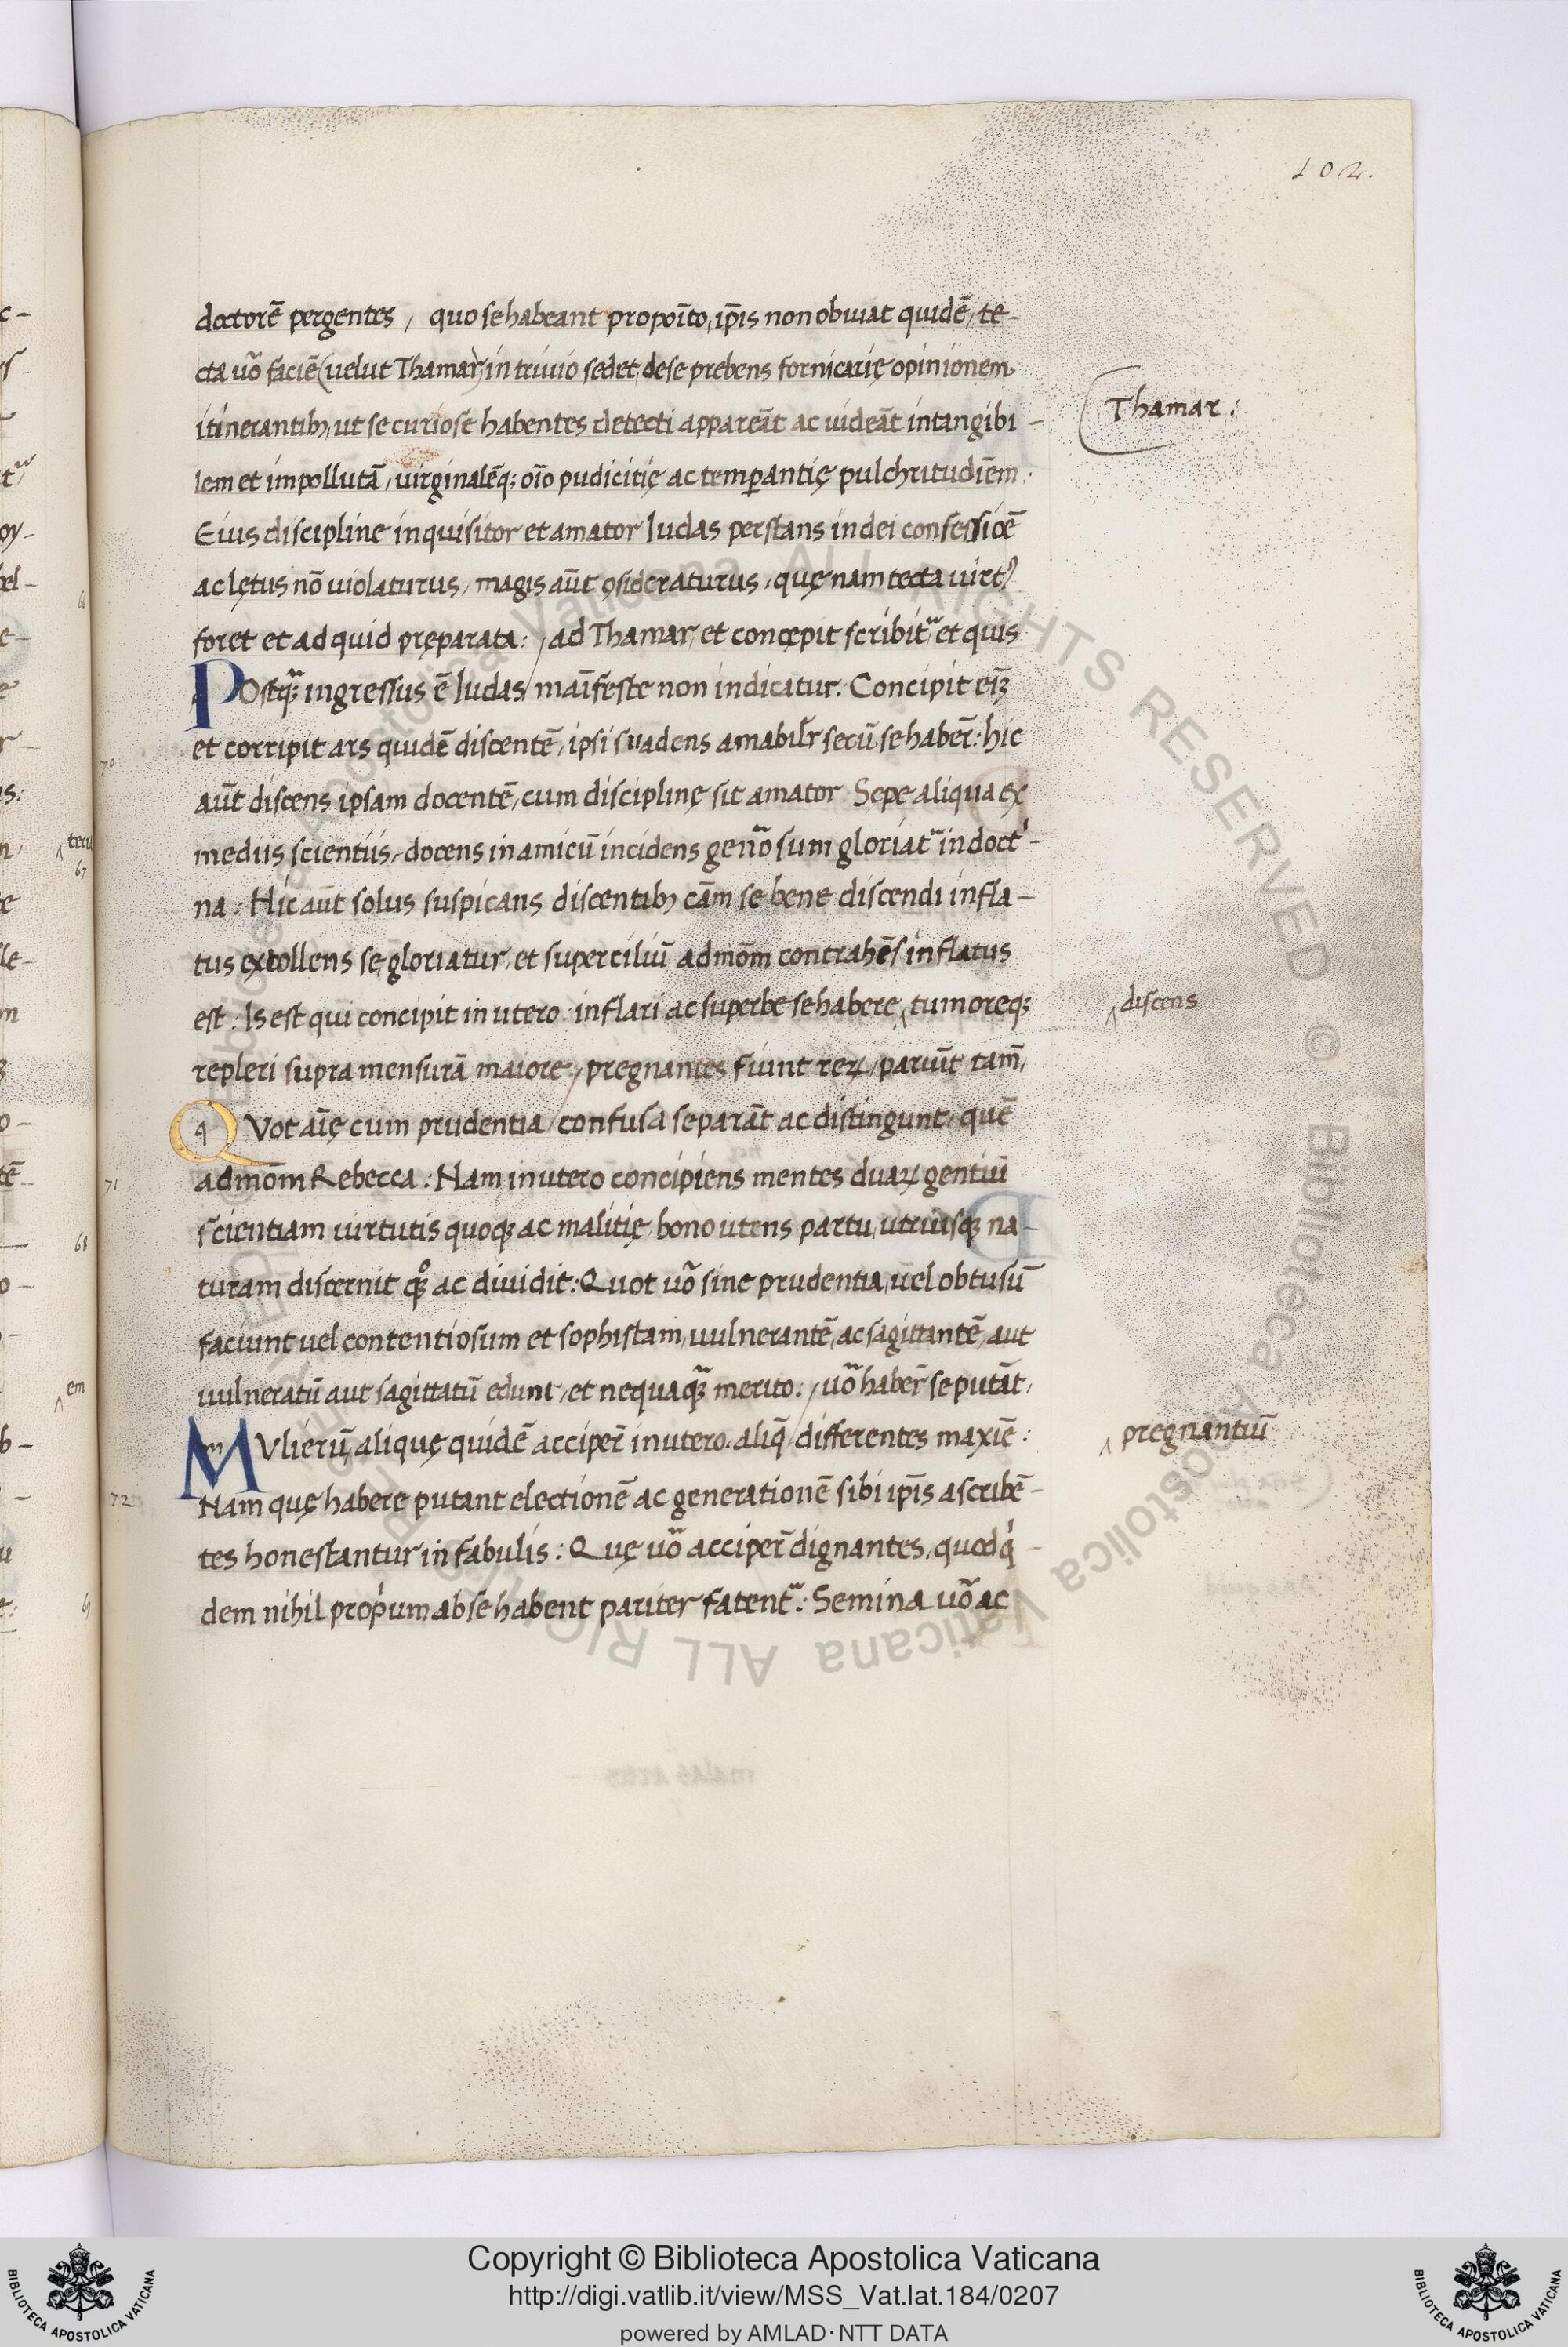 102.
doctorē pergentes, quo se habeant propoīto, ip̄is non obuiat quidē, te-
cta uõ faciē (uelut Thamar) in triuio sedet, de se prebens fornicarię opinionem
itinerantibꝫ, ut se curiose habentes detecti appareāt ac uideāt intangibi-
Thamar:
lem et impollutā, uirginalēqꝫ oīo pudicitię ac temꝑantię pulchritudiēm.
Eius discipline inquisitor et amator Iudas perstans in dei confessiōe
ac lętus nō uiolaturus, magis aūt ꝯsideraturus, quę nam tecta uirtꝰ
foret et ad quid pręparata: / ad Thamar, et concępit scribit᷑ et quis
POstqꝫ᷑ ingressus ē Iudas, maīfeste non indicatur. Concipit eīꝫ
et corripit ars quidē discentē, ipsi suadens amabilr̄ secū se haber̄: hic
70
aūt discens ipsam docentē, cum disciplinę sit amator. Sepe aliqua ex
mediis scientiis, docens inamicū incidens geñõsum gloriat᷑ in doctⁱ-
na: Hic aūt solus suspicans discentibꝫ cām se bene discendi infla-
tus extollens se gloriatur, et superciliū admōm contrahēs inflatus
est: Is est qui concipit in utero: inflari ac superbe se habere, ‸tumoreqꝫ
‸discens
repleri supra mensurā maiore: / pregnantes fiunt reꝝ, pariūt tam̄,
QVot aīę cum prudentia, confusa separāt ac distingunt, quē
admōm Rebecca: Nam in utero concipiens mentes duaꝝ gentiū
71
scientiam uirtutis quoqꝫ ac malitię, bono utens partu, utriusqꝫ na-
turam discernit qꝫͦ ac diuidit: Quot uõ sine prudentia, uel obtusū
faciunt uel contentiosum et sophistam, uulnerantē, ac sagittantē, aut
uulneratū aut sagittatū edunt, et nequaqꝫ᷑ merito: / uõ haber̄ se putāt,
MVlierū, aliquę quidē acciper̄ in utero, aliq̄ / differentes maxīe:
‸pregnantiū
Nam quę habere putant electionē ac generationē sibi ip̄is ascribē-
72
tes honestantur in fabulis: Quę uõ acciper̄ dignantes, quodqⁱ-
dem nihil propⁱum ab se habent pariter fatent᷑: Semina uõ ac
Copyright © Biblioteca Apostolica Vaticana
http://digi.vatlib.it/view/MSS_Vat.lat.184/0207
powered by AMLAD·NTT DATA
BIBLIOTECA APOSTOLICA VATICANA
BIBLIOTECA APOSTOLICA VATICANA